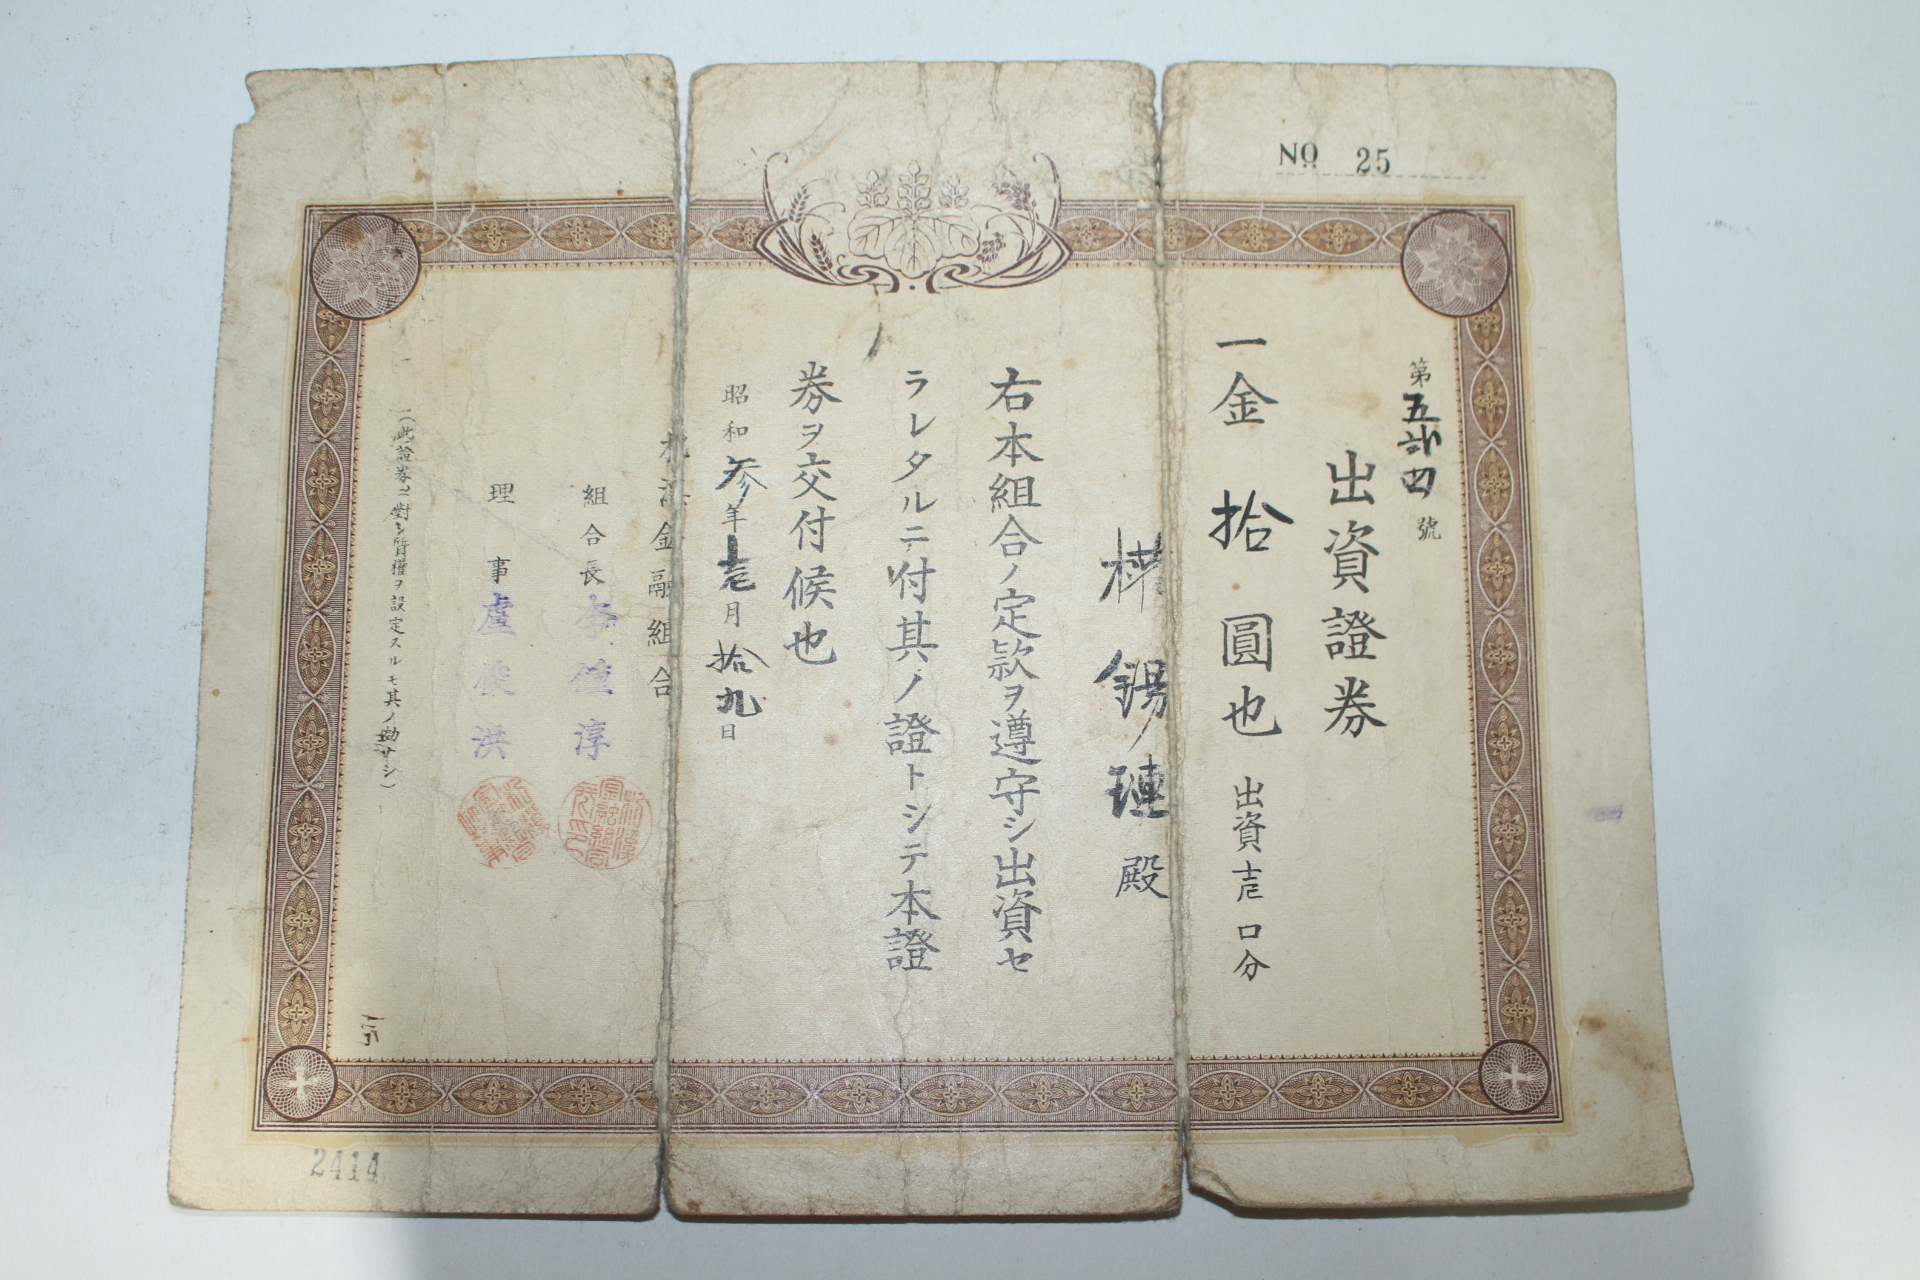 NO 25
第五弐四號
出資證券
一金拾圓也 出資壱口分
錫璉殿
右本組合ノ定款ヲ遵守シ出資セ
ラレタルニ付其ノ證トシテ本證
券ヲ交付候也
昭和参年壱月拾九日
金融組合
組合長 李 淳
理事 盧 洪
(此證券ニ對シ質權ヲ設定スルモ其ノ効ナシ)
2414